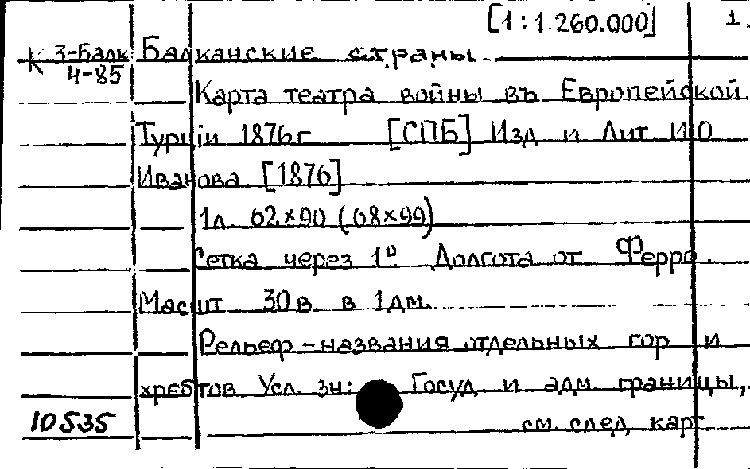 [1:1.260.000] 1.
К 3-Балк Балканские страны.
4-85
Карта театра войны въ Европейской
Турціи 1876г [СПБ] Изд и Лит И О
Иванова [1876]
1л. 62×90 (68×99)
Сетка через 1° Долгота от Ферро.
Масшт 30в в 1дм.
Рельеф - названия отдельных гор и
хребтов Усл. зн: Госуд и адм границы,
10535 см. след карт